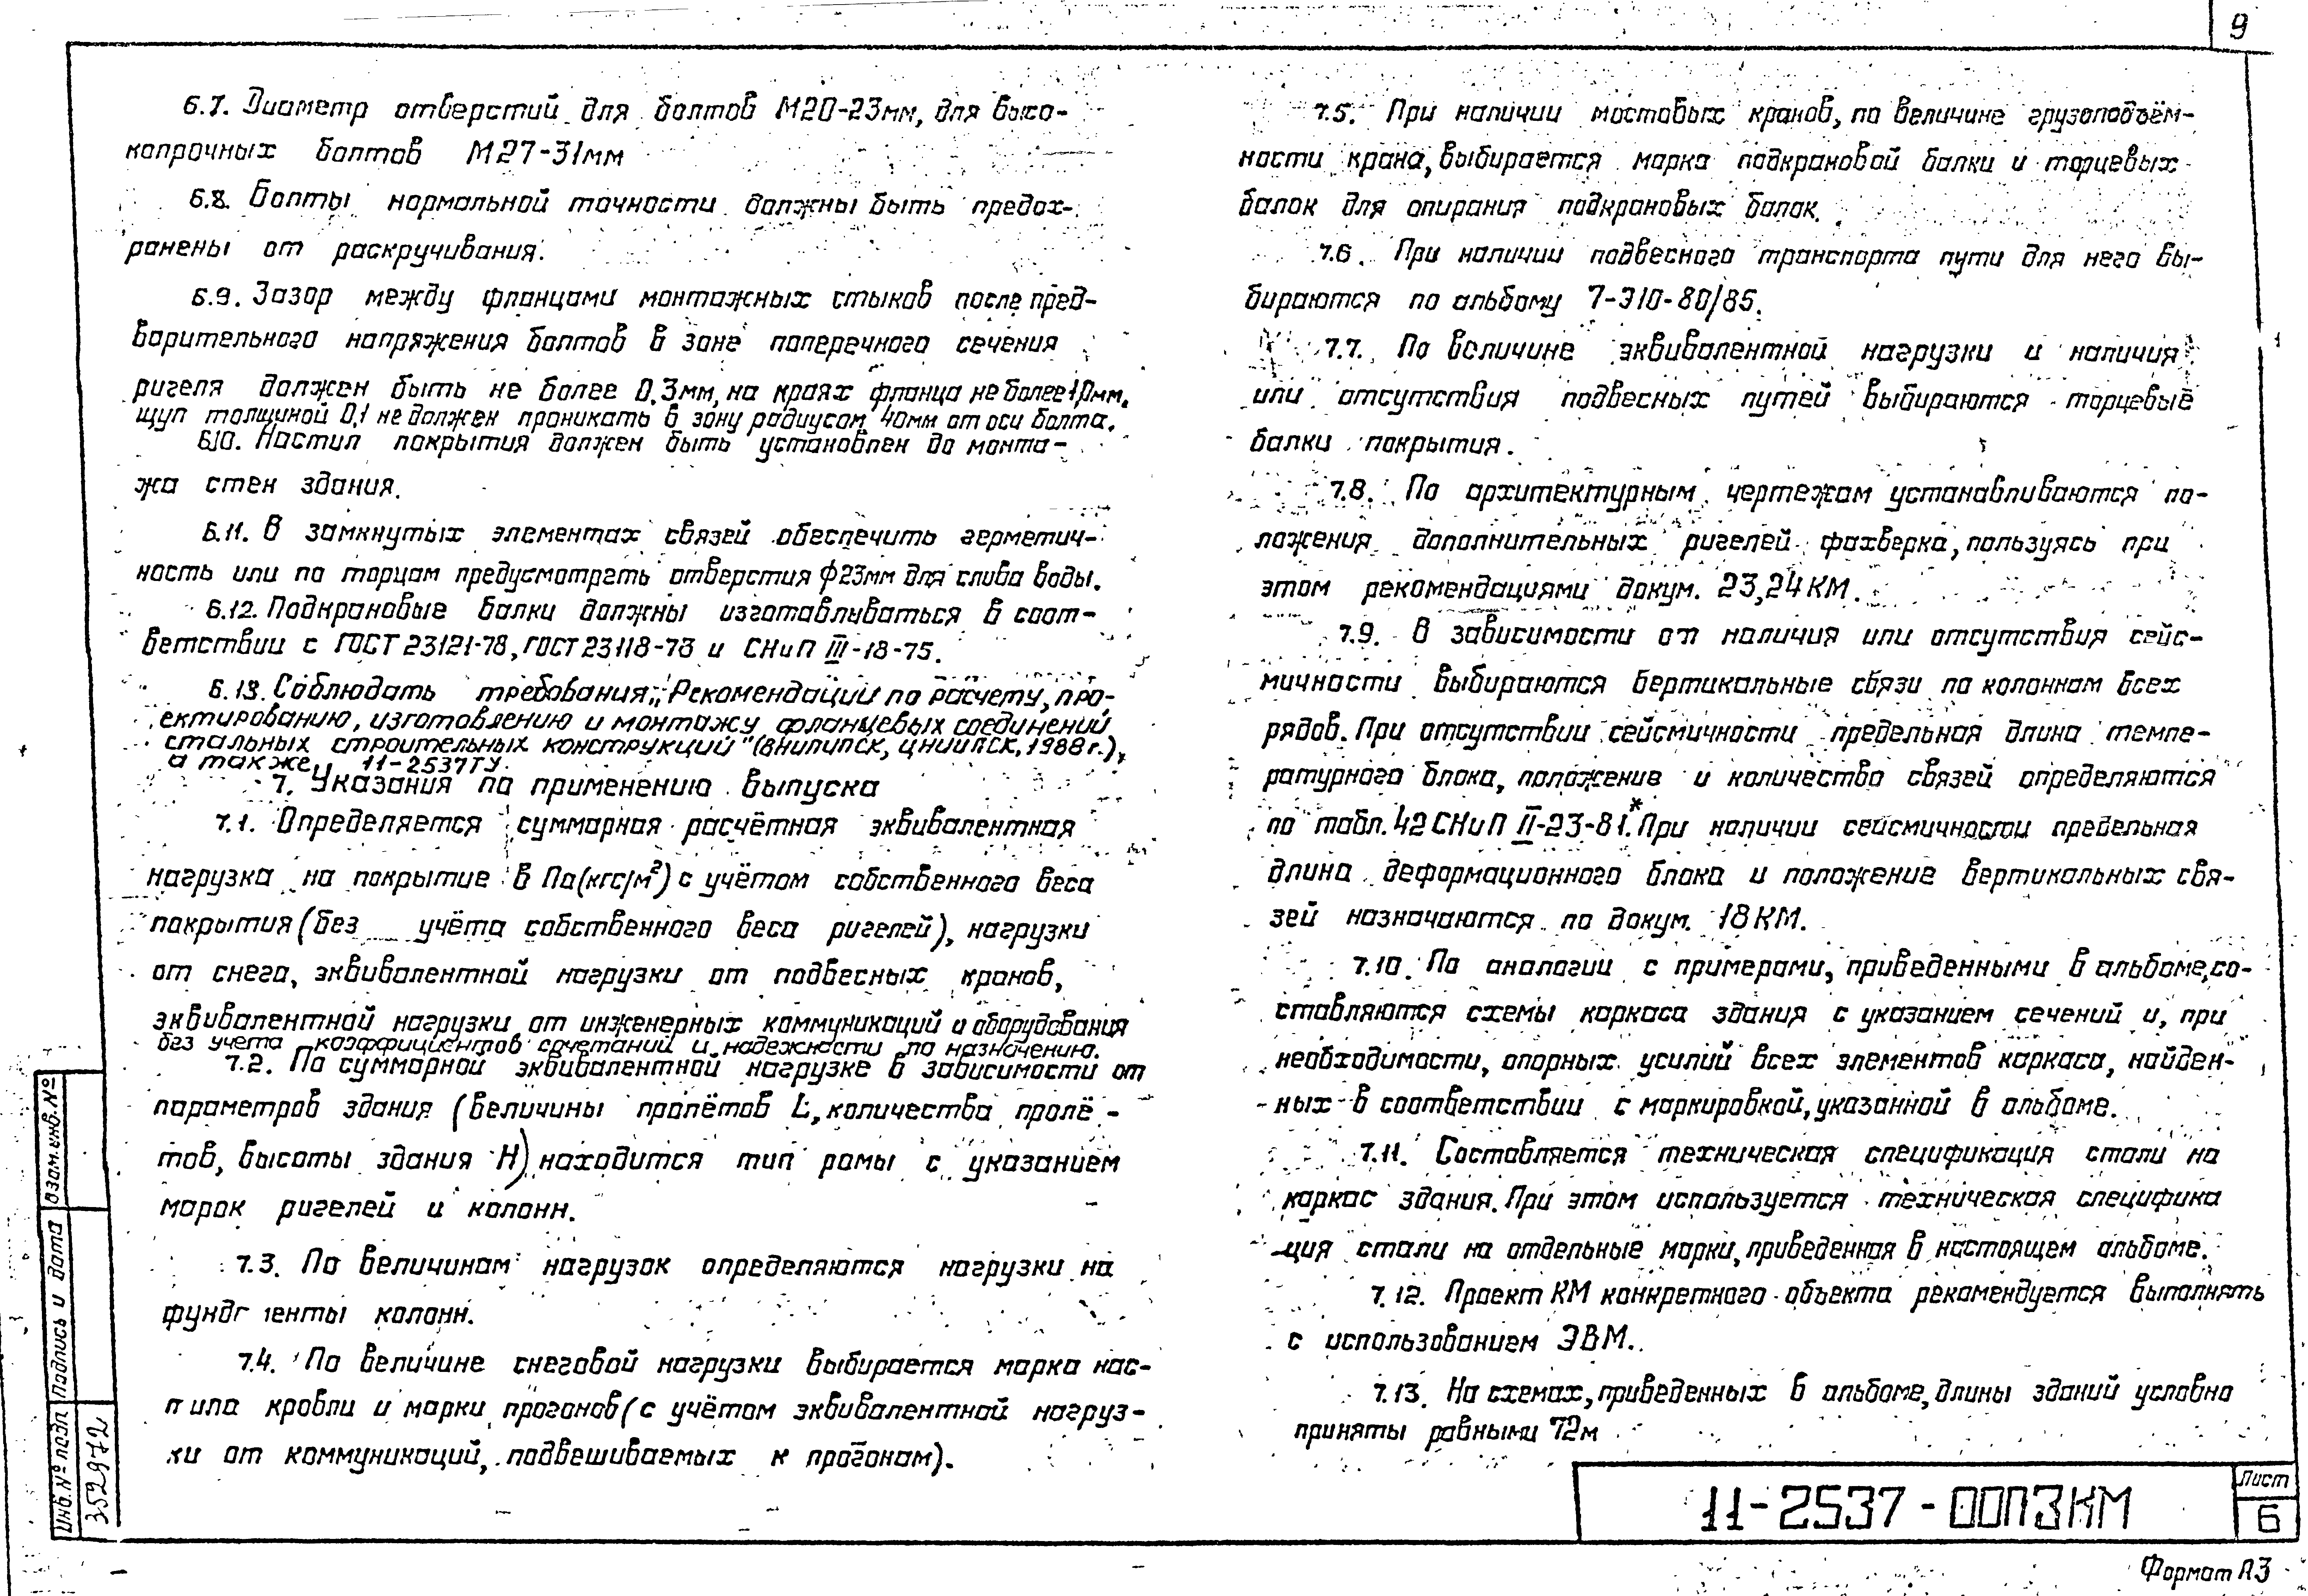 9
6.7. Диаметр отверстий для болтов М20-23мм, для высо-
копрочных болтов М27-31мм
6.8. Болты нормальной точности должны быть предох-
ранены от раскручивания.
6.9. Зазор между фланцами монтажных стыков после пред-
варительного напряжения болтов в зоне поперечного сечения
ригеля должен быть не более 0.3мм, на краях фланца не более 1.0мм.
щуп толщиной 0,1 не должен проникать в зону радиусом 40мм от оси болта.
6.10. Настил покрытия должен быть установлен до монта-
жа стен здания.
6.11. В замкнутых элементах связей обеспечить герметич-
ность или по торцам предусмотреть отверстия ф23мм для слива воды.
6.12. Подкрановые балки должны изготавливаться в соот-
ветствии с ГОСТ 23121-78, ГОСТ 23118-78 и СНиП III-18-75.
6.13. Соблюдать требования „Рекомендации по расчету, про-
ектированию, изготовлению и монтажу фланцевых соединений
стальных строительных конструкций" (ВНИПИПСК, ЦНИИПСК, 1988 г.),
а также 11-2537ТУ.
7. Указания по применению выпуска
7.1. Определяется суммарная расчётная эквивалентная
нагрузка на покрытие в Па(кгс/м²) с учётом собственного веса
покрытия (без учёта собственного веса ригелей), нагрузки
от снега, эквивалентной нагрузки от подвесных кранов,
эквивалентной нагрузки от инженерных коммуникаций и оборудования
без учета коэффициентов сочетаний и надежности по назначению.
7.2. По суммарной эквивалентной нагрузке в зависимости от
параметров здания (величины пролётов L, количества пролё-
тов, высоты здания H) находится тип рамы с указанием
марок ригелей и колонн.
7.3. По величинам нагрузок определяются нагрузки на
фундаменты колонн.
7.4. По величине снеговой нагрузки выбирается марка нас-
тила кровли и марки прогонов (с учётом эквивалентной нагруз-
ки от коммуникаций, подвешиваемых к прогонам).
7.5. При наличии мостовых кранов, по величине грузоподъём-
ности крана, выбирается марка подкрановой балки и торцевых
балок для опирания подкрановых балок.
7.6. При наличии подвесного транспорта пути для него вы-
бираются по альбому 7-310-80/85.
7.7. По величине эквивалентной нагрузки и наличия
или отсутствия подвесных путей выбираются торцевые
балки покрытия.
7.8. По архитектурным чертежам устанавливаются по-
ложения дополнительных ригелей фахверка, пользуясь при
этом рекомендациями докум. 23,24КМ.
7.9. В зависимости от наличия или отсутствия сейс-
мичности выбираются вертикальные связи по колоннам всех
рядов. При отсутствии сейсмичности предельная длина темпе-
ратурного блока, положение и количество связей определяются
по табл. 42 СНиП II-23-81*. При наличии сейсмичности предельная
длина деформационного блока и положение вертикальных свя-
зей назначаются по докум. 18КМ.
7.10. По аналогии с примерами, приведенными в альбоме, со-
ставляются схемы каркаса здания с указанием сечений и, при
необходимости, опорных усилий всех элементов каркаса, найден-
ных в соответствии с маркировкой, указанной в альбоме.
7.11. Составляется техническая спецификация стали на
каркас здания. При этом используется техническая специфика
-ция стали на отдельные марки, приведенная в настоящем альбоме.
7.12. Проект КМ конкретного объекта рекомендуется выполнять
с использованием ЭВМ.
7.13. На схемах, приведенных в альбоме, длины зданий условно
приняты равными 72м
Взам.инв.№
Подпись и дата
Инв.№ подл
352972
11-2537-00ПЗКМ
Лист
6
Формат А3